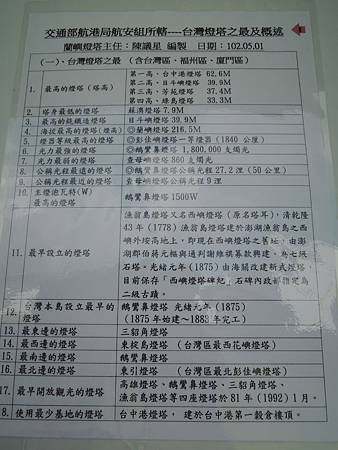 交通部航港局航安組所轄----台灣燈塔之最及概述
蘭嶼燈塔主任：陳議星 編製 日期：102.05.01
(一)、台灣燈塔之最 (含台灣區、福州區、廈門區)
1. 最高的燈塔(塔高)
第一高、台中港燈塔 62.6M
第二高、目斗嶼燈塔 39.9M
第三高、芳苑燈塔 37.4M
第四高、綠島燈塔 33.3M
2. 塔身最低的燈塔 蘇澳燈塔 7.9M
3. 最高的銑鐵造燈塔 目斗嶼燈塔 39.9M
4. 海拔最高的燈塔(燈高) ◎蘭嶼燈塔 216.5M
5. 燈器等級最高的燈塔 ◎彭佳嶼燈塔一等燈器 (1840 公厘)
6. 光力最強的燈塔 ◎鵝鑾鼻燈塔 1,800,000 支燭光
7. 光力最弱的燈塔 查母嶼燈塔 860 支燭光
8. 公稱光程最遠的燈塔 ◎鵝鑾鼻燈塔公稱光程 27.2 浬 (50 公里)
9. 公稱光程最近的燈塔 查母嶼燈塔公稱光程 9 浬
10. 主燈泡瓦特(W)最高的燈塔 鵝鑾鼻燈塔 1500W
11. 最早設立的燈塔
漁翁島燈塔又名西嶼燈塔 (原名塔耳)，清乾隆
43 年 (1778) 漁翁島燈塔建於澎湖漁翁島之西
嶼外垵高地上，即現在西嶼燈塔之舊址，由澎
湖郡伯蔣元樞與通判謝維祺募款興建，為七級
石塔。光緒元年 (1875) 由海關改建新式燈塔，
目前保存「西嶼燈塔碑紀」石碑內政部指定為
二級古蹟。
12. 台灣本島設立最早的燈塔
鵝鑾鼻燈塔 光緒元年 (1875)
(1875 年始建~1883 年完工)
13. 最東邊的燈塔 三貂角燈塔
14. 最西邊的燈塔 東椗島燈塔 (台灣區最西花嶼燈塔)
15. 最南邊的燈塔 鵝鑾鼻燈塔
16. 最北邊的燈塔 東引燈塔 (台灣區最北彭佳嶼燈塔)
17. 最早開放觀光的燈塔
高雄燈塔、鵝鑾鼻燈塔、三貂角燈塔、
漁翁島燈塔等四座燈塔於 81 年 (1992) 1 月。
18. 使用最少基地的燈塔 台中港燈塔，建於台中港第一穀倉樓頂。